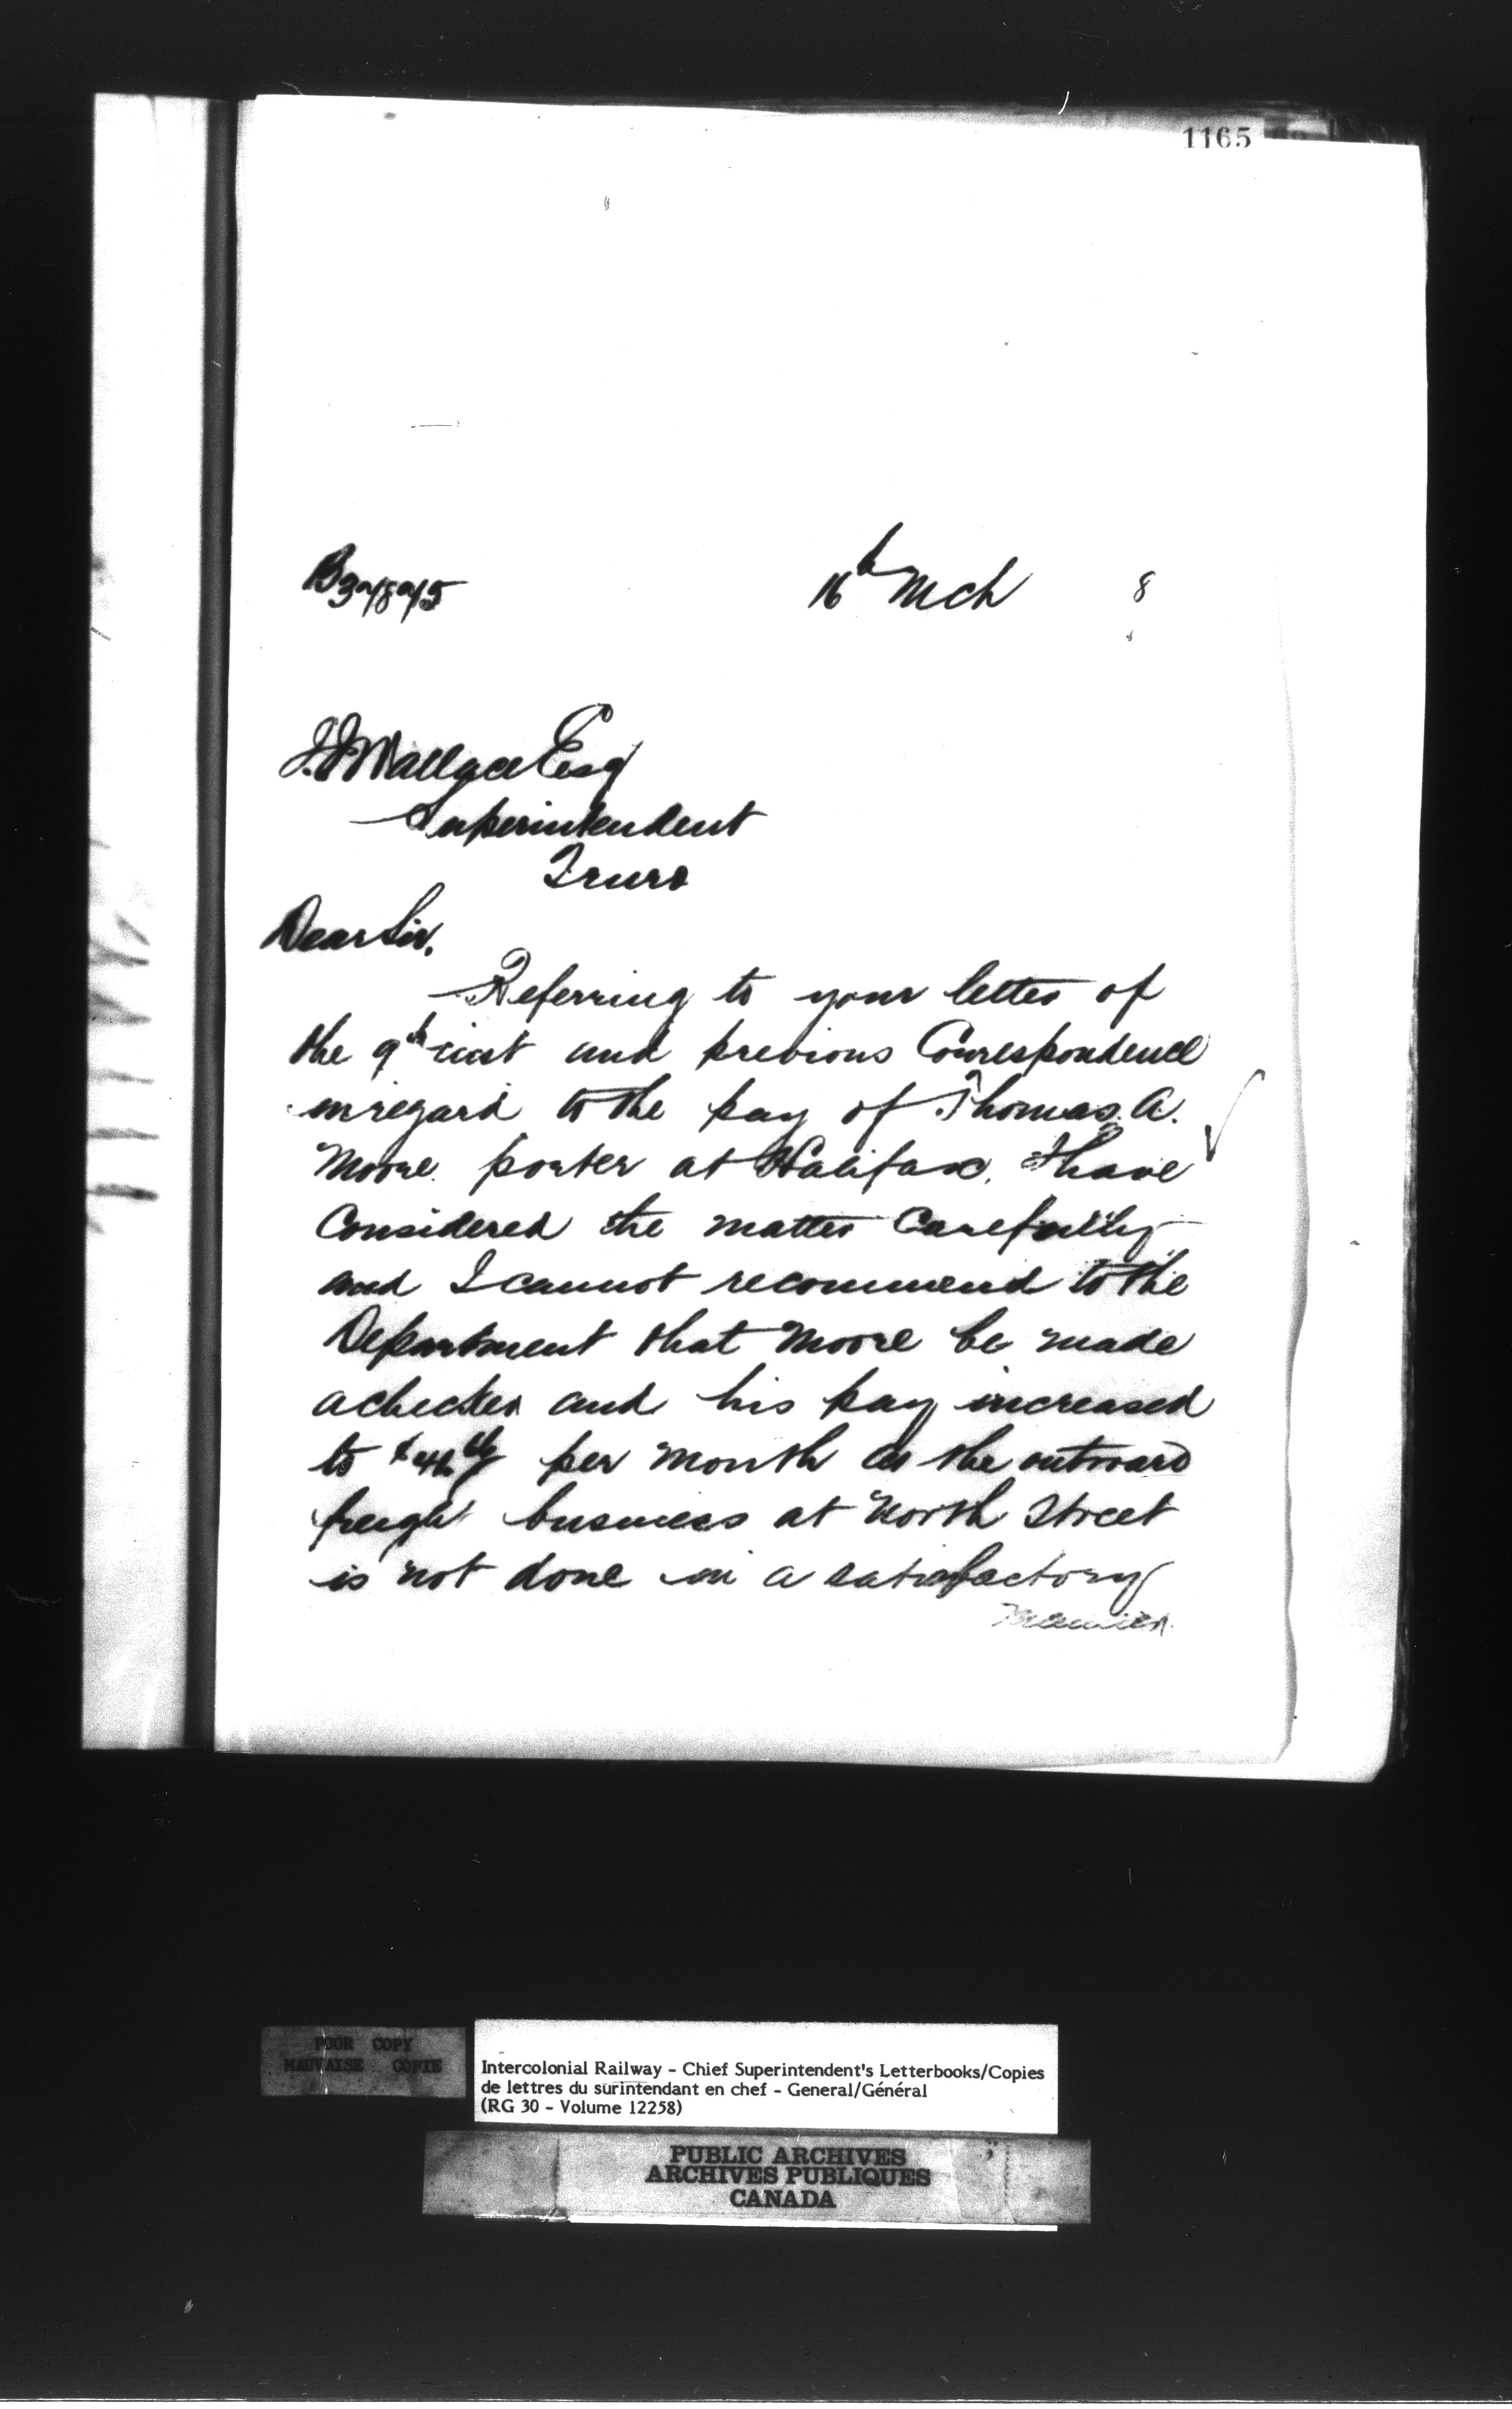 1165
16th Mch 8
J.J Wallace Esq
Superintendent
Truro
Dear Sir,
Referring to your letter of
the 9th inst and previous Correspondence
in regard to the pay of Thomas. A.
Moore porter at Halifax, I have
Considered the matter Carefully
and I cannot recommend to the
Department that Moore be made
a checker and his pay increased
to per month as the outward
freight business at North Street
is not done in a satisfactory
manner.
POOR COPY
MAUVAISE COPIE
Intercolonial Railway - Chief Superintendent's Letterbooks/Copies
de lettres du surintendant en chef - General/Général
(RG 30 - Volume 12258)
PUBLIC ARCHIVES
ARCHIVES PUBLIQUES
CANADA